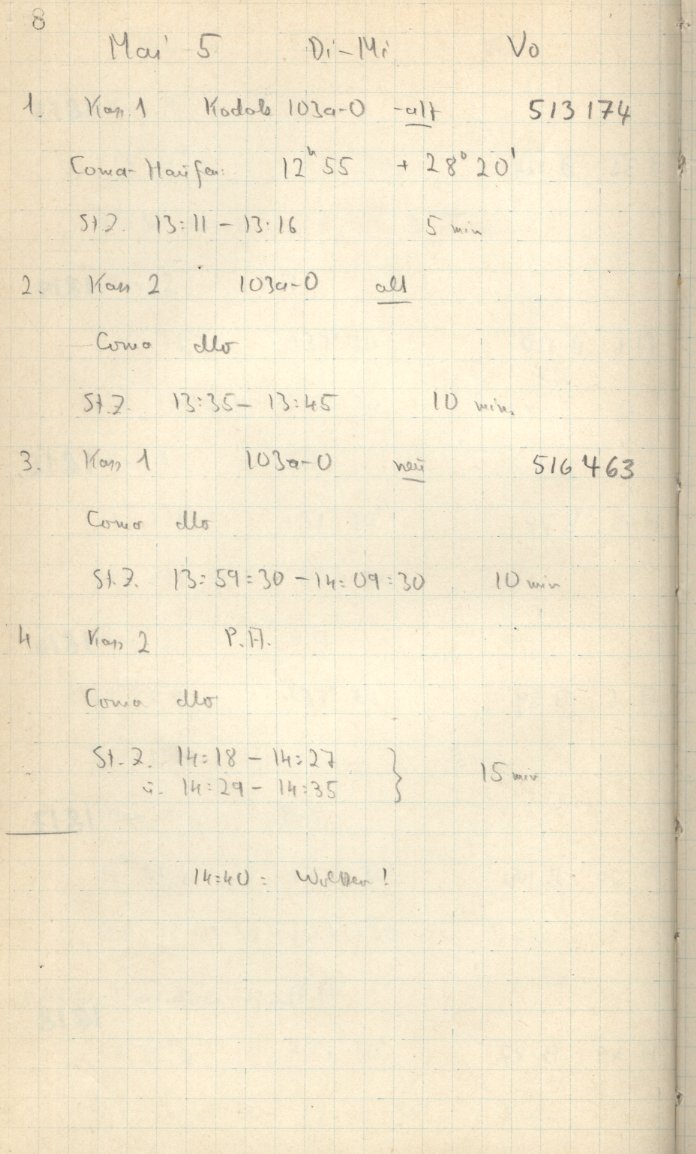 8
Mai 5 Di-Mi Vo
1. Kass 1 Kodak 103a-O - alt 513174
Coma-Haufen: 12h 55 + 28° 20'
St.Z. 13:11 - 13:16 5 min
2. Kass 2 103a-O alt
Coma dto
St.Z. 13:35 - 13:45 10 min.
3. Kass 1 103a-O neu 516463
Coma dto
St.Z. 13:59:30 - 14:09:30 10 min
4 Kass 2 P.A.
Coma dto
St.Z. 14:18 - 14:27 } 15 min
u. 14:29 - 14:35
14:40 : Wolken!